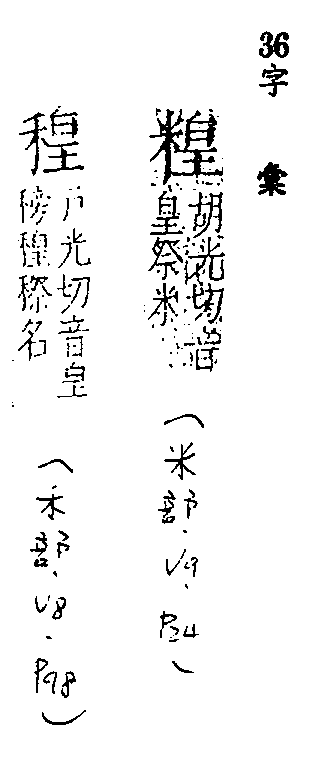 36字彙
糧
胡光切音
皇祭米
(米部.V9.P24)
稑
戶光切音皇
穄名
(禾部.V8.P98)